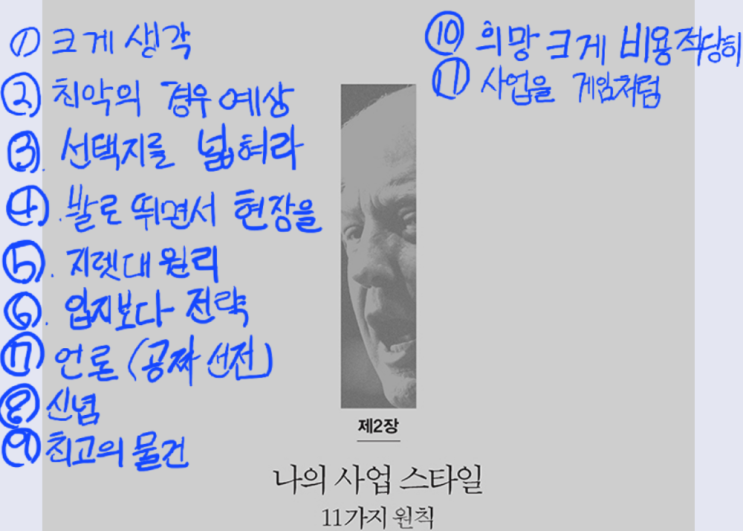 ① 크게 생각
② 최악의 경우 예상
③. 선택지를 넓혀라
④. 발로 뛰면서 현장을
⑤. 지렛대 원리
⑥. 입지보다 전략
⑦ 언론 (공짜 선전)
⑧ 신념
⑨ 최고의 물건
⑩ 희망 크게 비용 적당히
⑪ 사업을 게임처럼
제2장
나의 사업 스타일
11가지 원칙